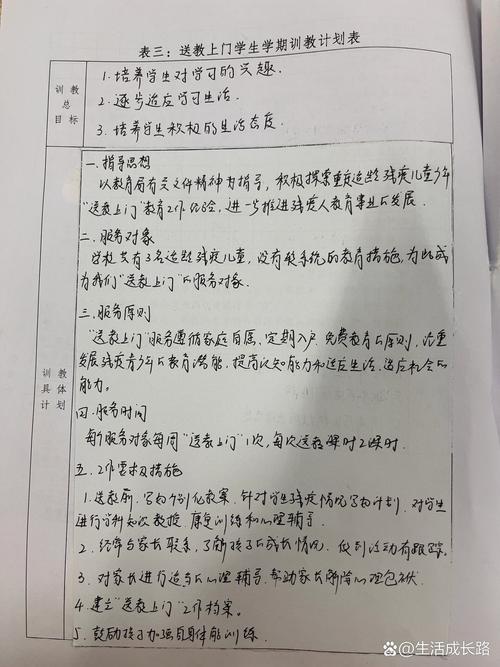 表三：送教上门学生学期训教计划表
训教
总
目标
1.培养学生对学习的兴趣.
2.逐步适应学习生活.
3.培养学生积极的生活态度.
训教
具体
计划
一.指导思想
以教育局有关文件精神为指导，积极探索重度适龄残疾儿童少年
"送教上门"教育工作经验，进一步推进残疾人教育事业的发展.
二.服务对象
学校共有3名适龄残疾儿童，没有较系统的教育措施，为此成
为我们"送教上门"的服务对象.
三.服务原则
"送教上门"服务遵循家庭自愿、定期入户、免费教育的原则，注重
发展残疾青少年的教育潜能，提高认知能力和适应生活、适应社会的
能力。
四.服务时间
每个服务对象每周"送教上门"1次，每次送教课时2课时.
五.工作要求及措施
1.送教前，写好个别化教案，针对学生残疾情况写好计划，对学生
进行学科知识教授、康复训练和心理辅导.
2.经常与家长联系，了解孩子的成长情况，做到活动有跟踪.
3.对家长进行适当的心理辅导，帮助家长解除心理包袱.
4.建立"送教上门"工作档案。
5.鼓励孩子加强自身体能训练.
@生活成长路